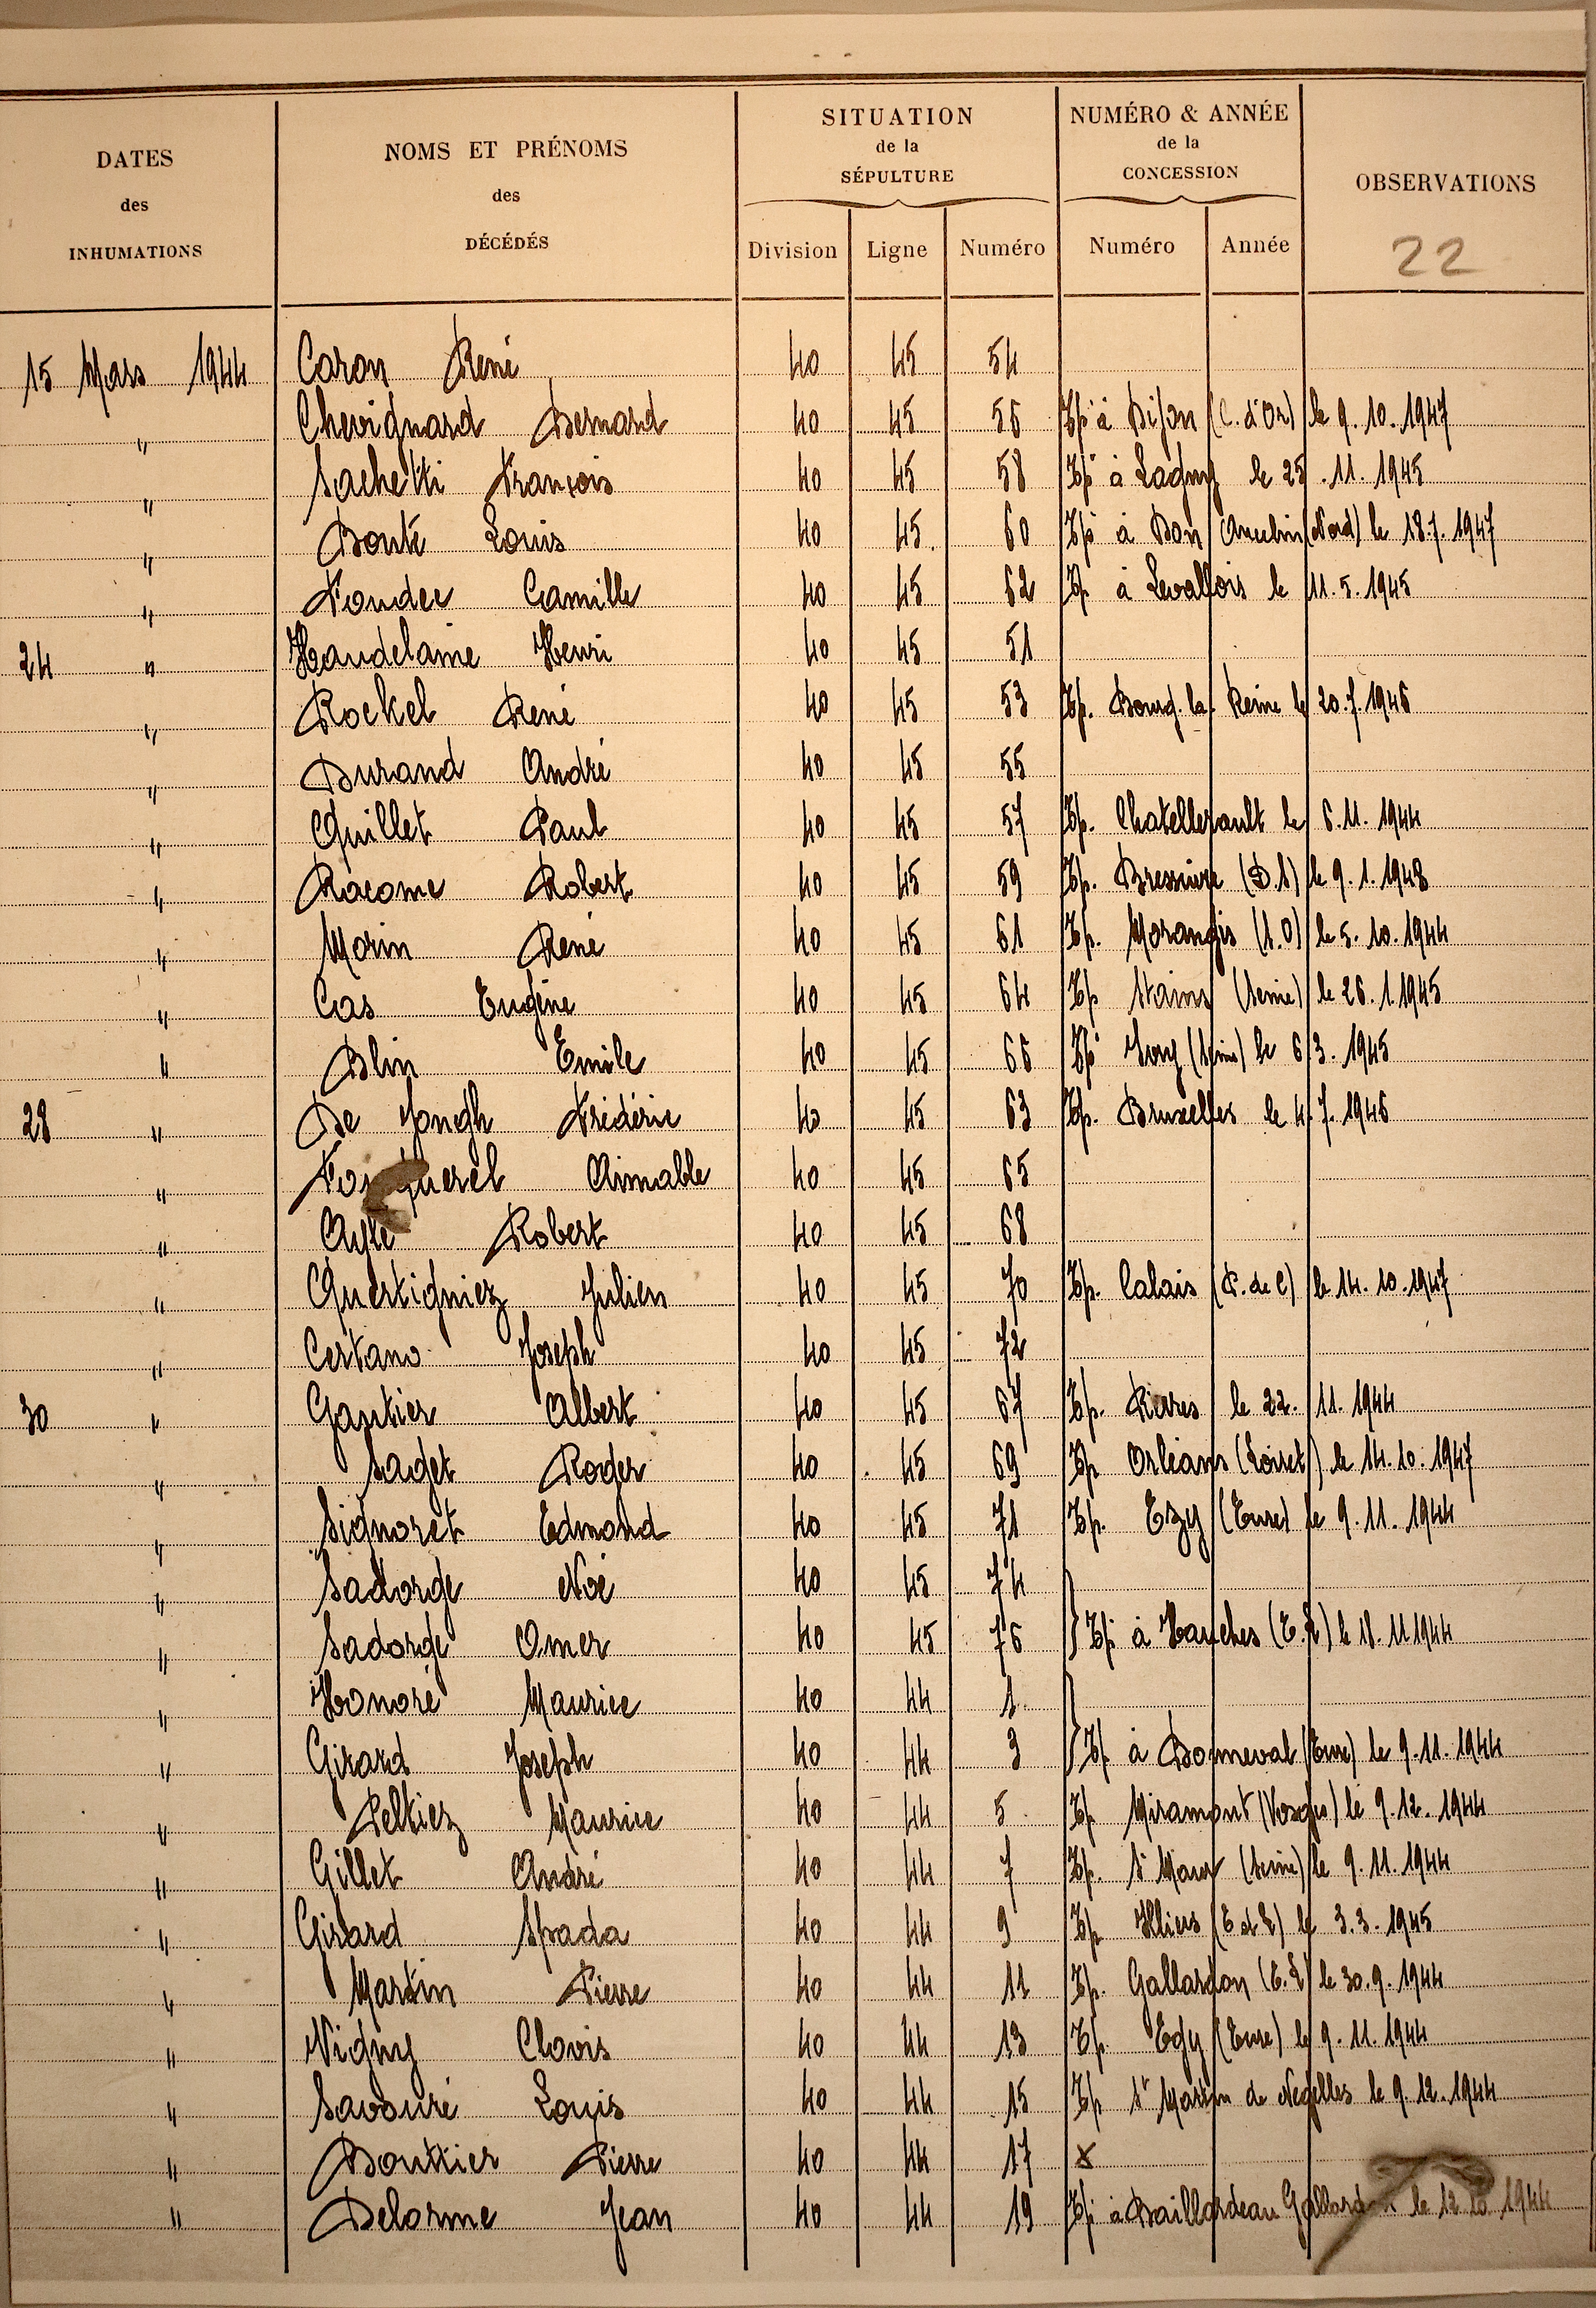 DATES des INHUMATIONS
NOMS ET PRÉNOMS des DÉCÉDÉS
SITUATION de la SÉPULTURE
NUMÉRO & ANNÉE de la CONCESSION
OBSERVATIONS
Division Ligne Numéro Numéro Année
22
15 Mars 1944 Caron René 40 45 54
" Chevignard Bernard 40 45 56 Tp à Dijon (C. d'Or) le 9.10.1947
" Sachetti François 40 45 58 Tp à Lagny le 25.11.1945
" Bonté Louis 40 45 60 Tp à Don (Nord) le 18.7.1947
" Camille 40 45 62 Tp à Levallois le 11.5.1945
24 " Haudelaine Henri 40 45 51
" Rockel René 40 45 53 Tp. Bourg.la.Reine le 20.7.1946
" Durand André 40 45 55
" Quillet Paul 40 45 57 Tp. Chatellerault le 6.11.1944
" Racome Robert 40 45 59 Tp. Bressuire (D.S) le 9.1.1948
" Morin René 40 45 61 Tp. Morangis (S.O) le 5.10.1944
" Cas Eugène 40 45 64 Tp Stains (Seine) le 26.1.1945
" Blin Emile 40 45 66 Tp Ivry (Seine) le 6.3.1945
28 " De Jongh Frédéric 40 45 63 Tp. Bruxelles le 4.7.1946
" Aimable 40 45 65
" Robert 40 45 68
" Quertigniez Julien 40 45 70 Tp. Calais (P.de C) le 14.10.1947
" Certano Joseph 40 45 72
30 " Gautier Albert 40 45 67 Tp. Pierres le 22.11.1944
" Saget Roger 40 45 69 Tp Orléans (Loiret) le 14.10.1947
" Signoret Edmond 40 45 71 Tp. Ezy (Eure) le 9.11.1944
" Sadorge Noé 40 45 74
" Sadorge Omer 40 45 76 } Tp à Hanches (E.L) le 18.11.1944
" Honoré Maurice 40 44 1
" Girard Joseph 40 44 3 } Tp à Bonneval (Eure) le 9.11.1944
" Peltiez Maurice 40 44 5 Tp Miramont (Vosges) le 9.12.1944
" Gillet André 40 44 7 Tp. St Maur (Seine) le 9.11.1944
" Girard Spada 40 44 9 Tp Illiers (E et L) le 3.3.1945
" Martin Pierre 40 44 11 Tp. Gallardon (E.L) le 30.9.1944
" Vigny Clovis 40 44 13 Tp. Egy (Eure) le 9.11.1944
" Savouré Louis 40 44 15 Tp St Martin de Negelles le 9.12.1944
" Boutier Pierre 40 44 17 x
" Delorme Jean 40 44 19 Tp à Baillardeau le 12.10.1944